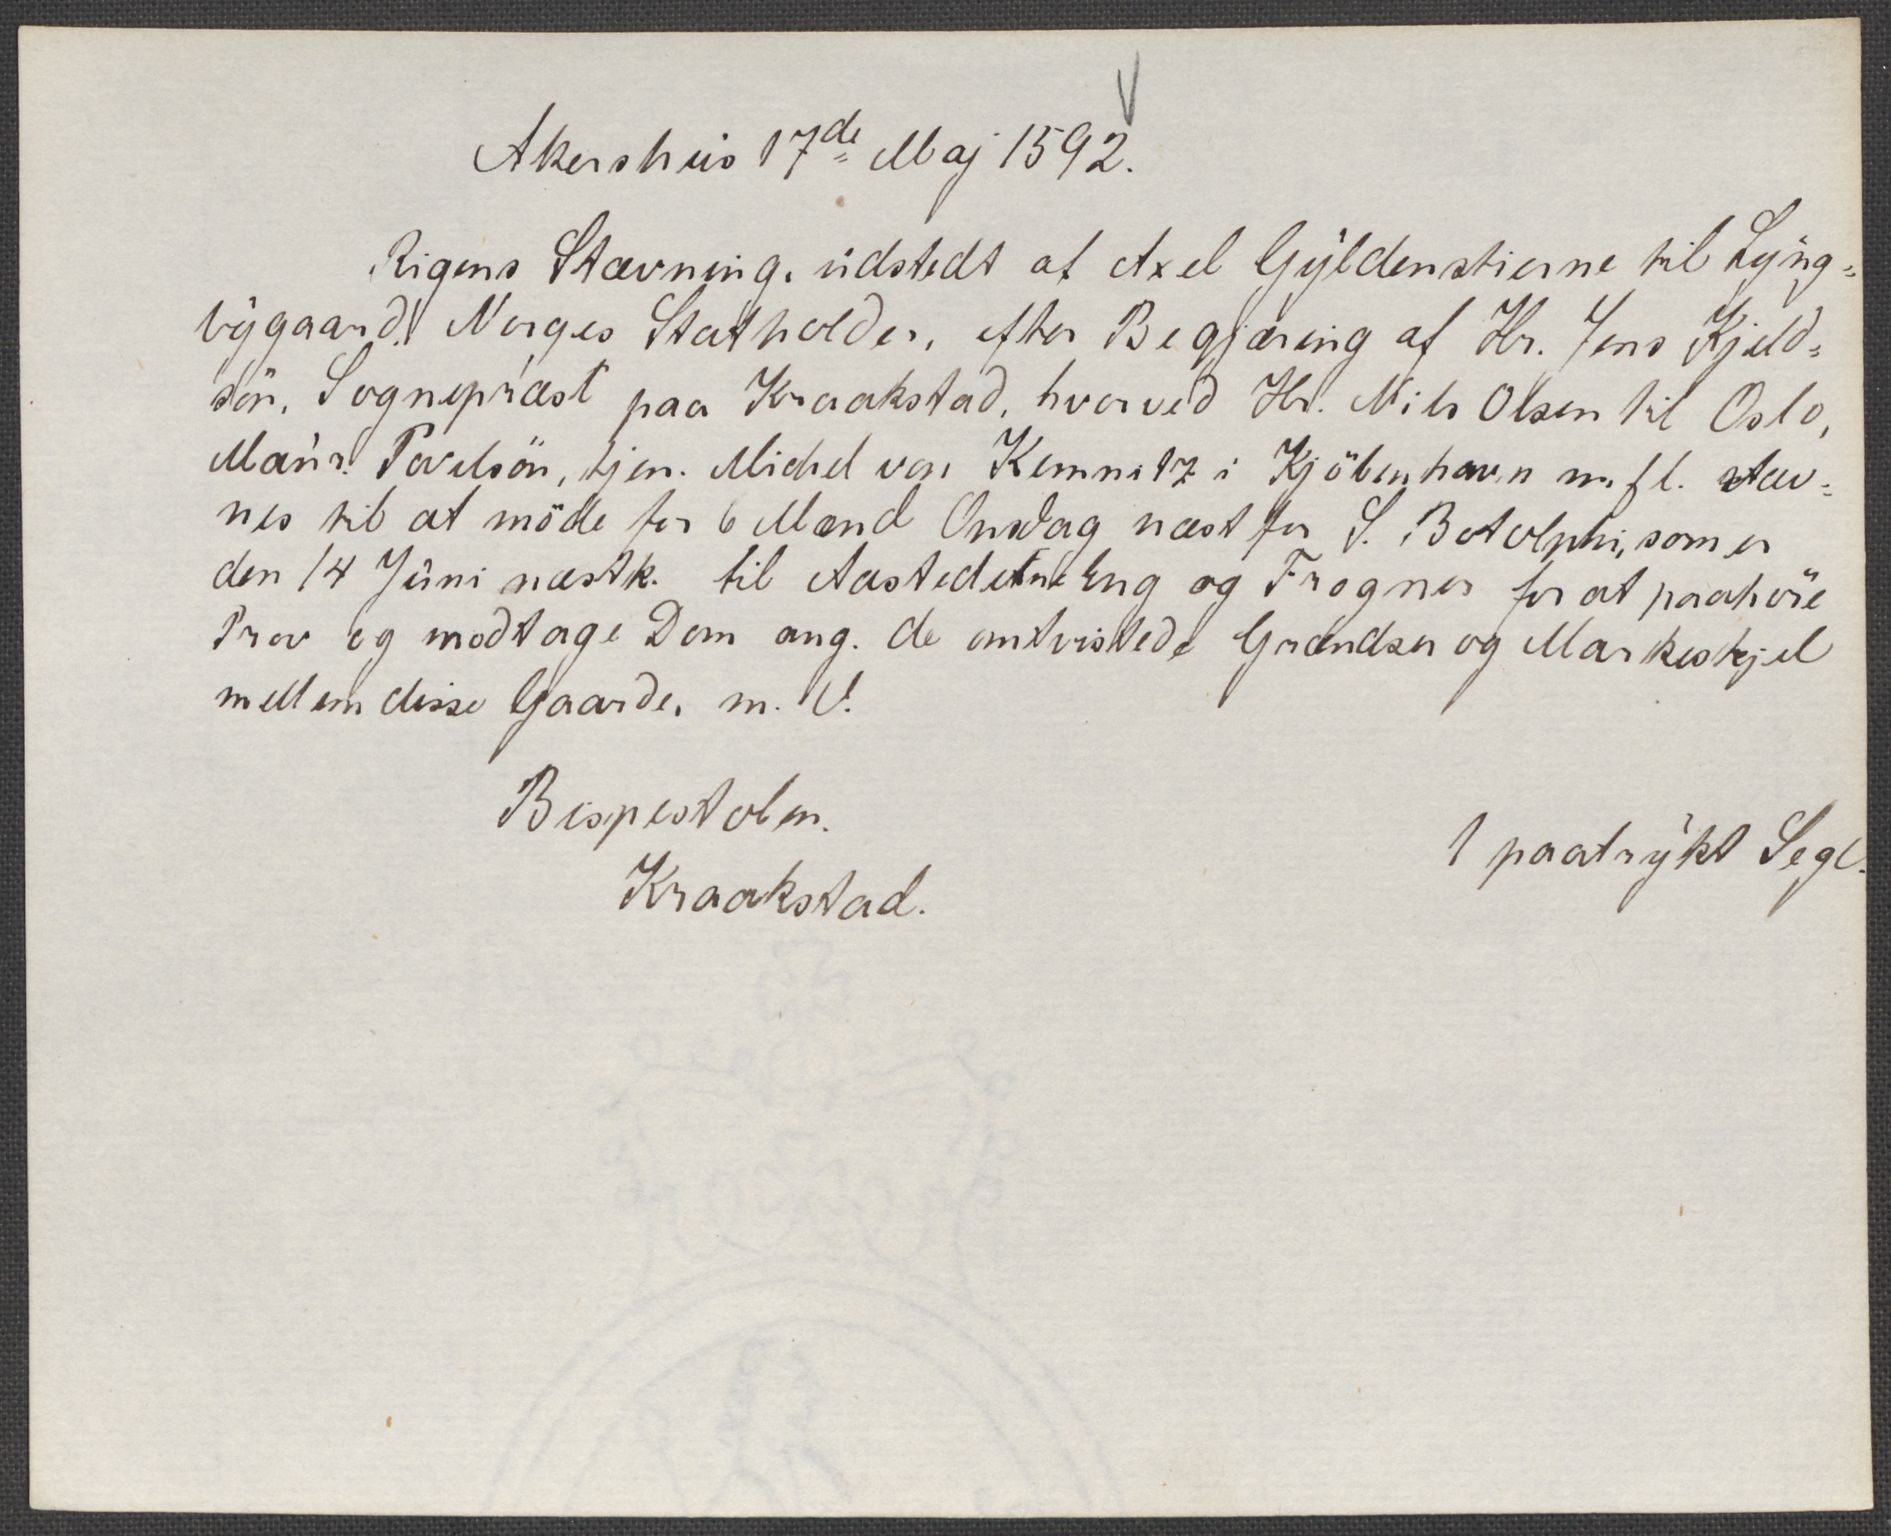 Akershus 17de Maj 1592.
Rigens Stævning, udstedt af Axel Gyldenstierne til Lyng=
bygaard, Norges Statholder, efter Begjæring af Hr. Jens Kjeld=
sön, Sognepræst paa Kraakstad, hvorved Hr. Nils Olsen til Oslo,
Povelsön, tjen. Michel von Kemnitz i Kjöbenhavn m. fl. stæv=
nes til at möde for 6 Mænd Onsdag næst for S. Botolphi, som er
den 14 Juni næstk. til Aastederne Eng og Frogner for at paahöre
Prov og modtage Dom ang. de omtvistede Grændser og Markeskjel
mellem disse Gaarde. m. V.
Bispestolen.
1 paatrykt Segl.
Kraakstad.